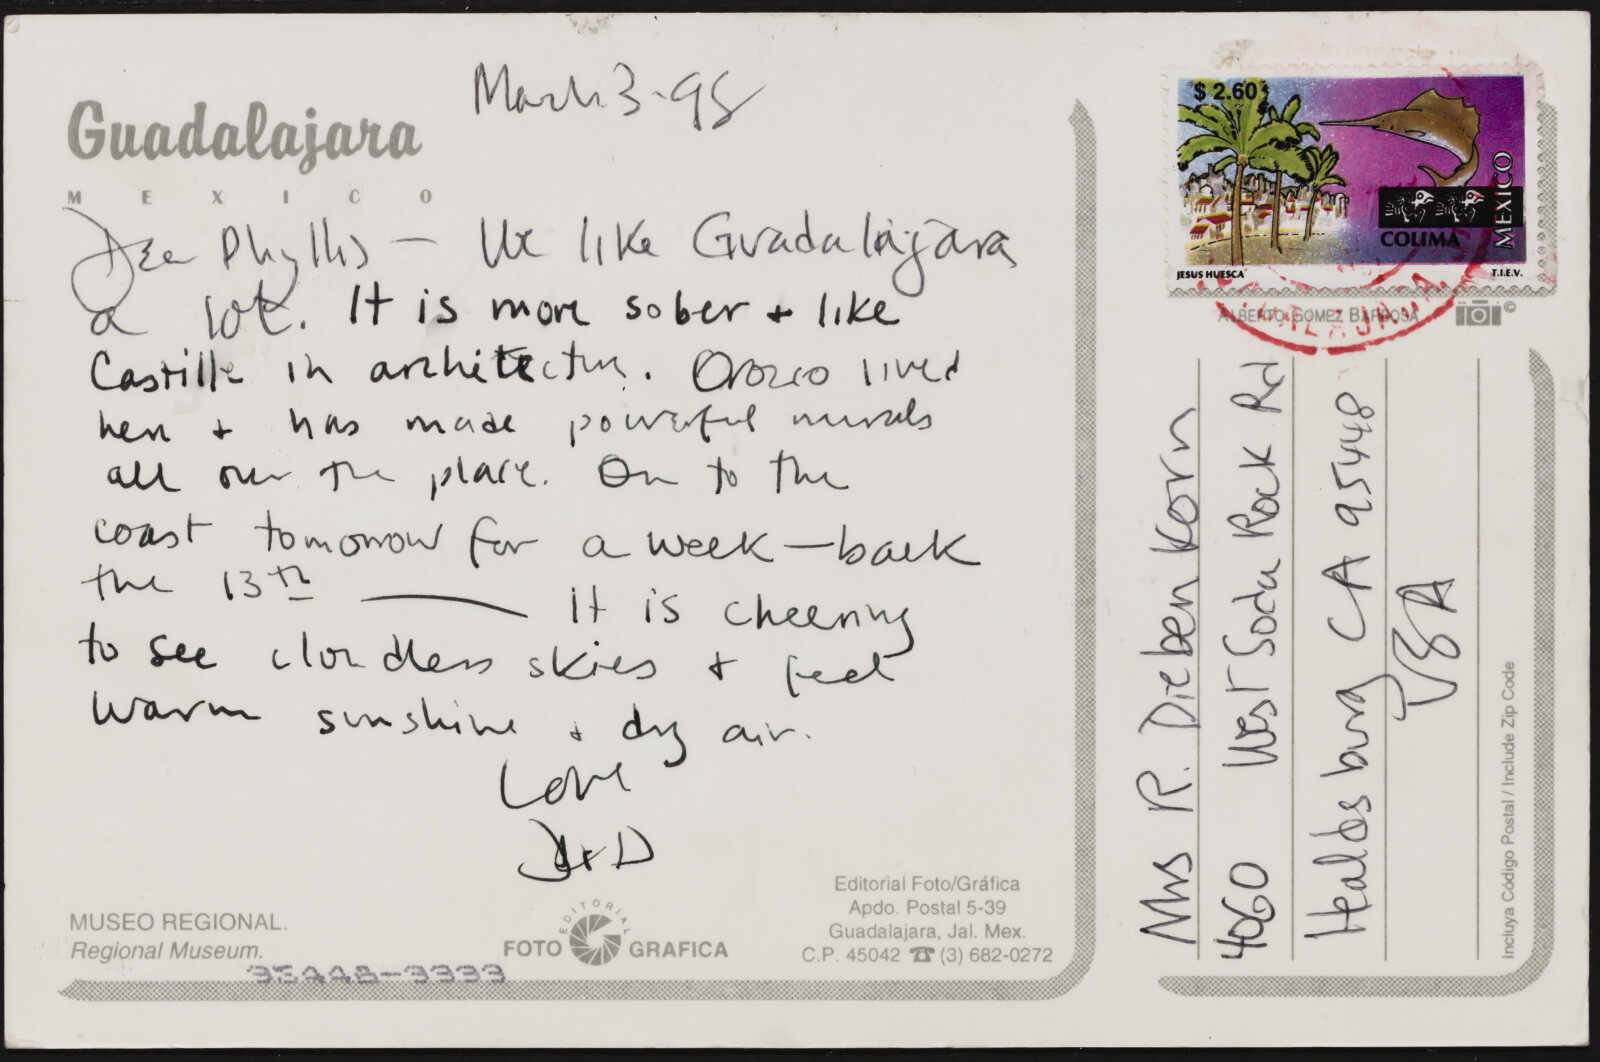 March 3-98
Guadalajara
MEXICO
Dear Phyllis — We like Guadalajara
a lot. It is more sober + like
Castille in architecture. Orozco lived
here + has made powerful murals
all over the place. On to the
coast tomorrow for a week — back
the 13th —— It is cheering
to see cloudless skies + feel
warm sunshine + dry air.
Love
+ D
MUSEO REGIONAL.
Regional Museum.
95448-9333
EDITORIAL
FOTO GRAFICA
Editorial Foto/Gráfica
Apdo. Postal 5-39
Guadalajara, Jal. Mex.
C.P. 45042 ☎ (3) 682-0272
$ 2.60
MEXICO
COLIMA
JESUS HUESCA
T.I.E.V.
ALBERTO GOMEZ BARBOSA ©
Mrs R. Diebenkorn
4060 West Soda Rock Rd
Healdsburg CA 95448
USA
Incluya Código Postal / Include Zip Code